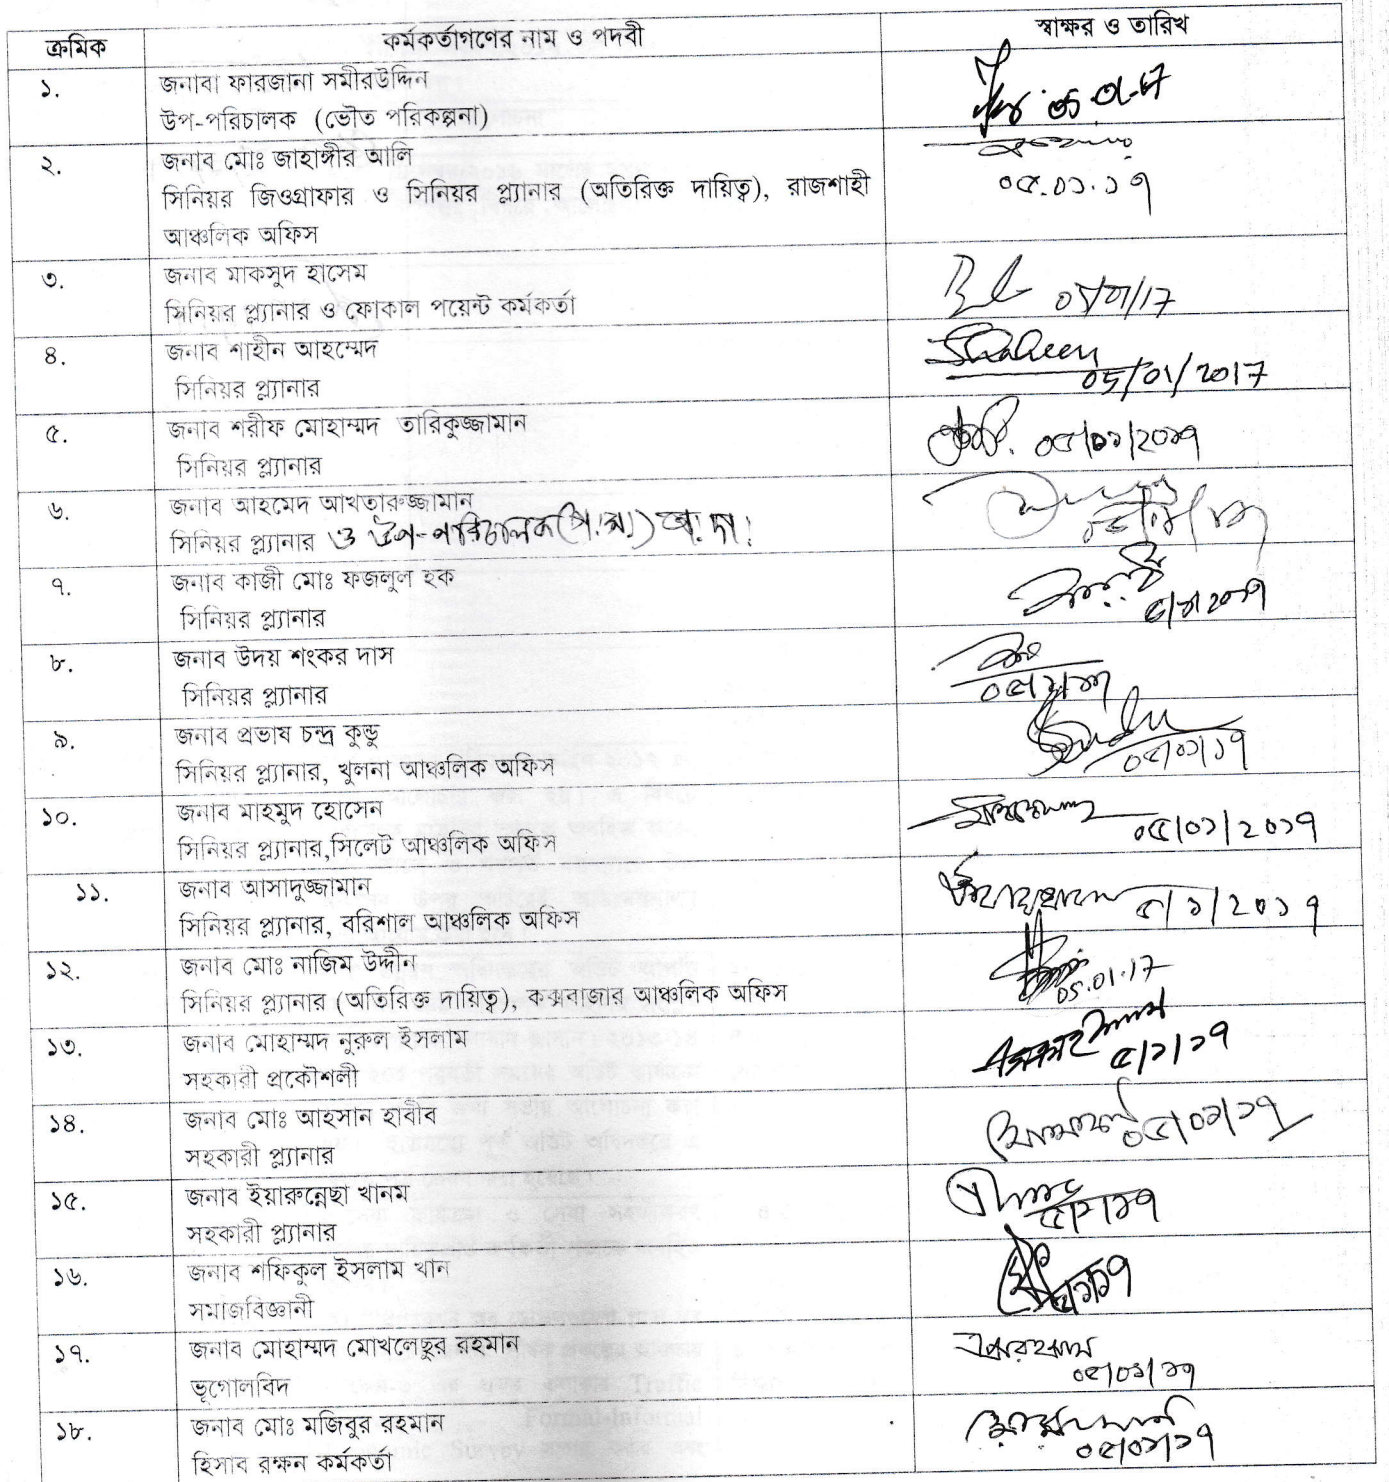 ক্রমিক কর্মকর্তাগণের নাম ও পদবী স্বাক্ষর ও তারিখ
১. জনাবা ফারজানা সমীরউদ্দিন
উপ-পরিচালক (ভৌত পরিকল্পনা)
২. জনাব মোঃ জাহাঙ্গীর আলি
সিনিয়র জিওগ্রাফার ও সিনিয়র প্ল্যানার (অতিরিক্ত দায়িত্ব), রাজশাহী ০৫.০১.১৭
আঞ্চলিক অফিস
৩. জনাব মাকসুদ হাসেম
সিনিয়র প্ল্যানার ও ফোকাল পয়েন্ট কর্মকর্তা 05/01/17
৪. জনাব শাহীন আহম্মেদ Shaheen
সিনিয়র প্ল্যানার 05/01/2017
৫. জনাব শরীফ মোহাম্মদ তারিকুজ্জামান ০৫/০১/২০১৭
সিনিয়র প্ল্যানার
৬. জনাব আহমেদ আখতারুজ্জামান
সিনিয়র প্ল্যানার ও উপ-পরিচালক
৭. জনাব কাজী মোঃ ফজলুল হক
সিনিয়র প্ল্যানার ৫/১/২০১৭
৮. জনাব উদয় শংকর দাস
সিনিয়র প্ল্যানার ০৫/১/১৭
৯. জনাব প্রভাষ চন্দ্র কুন্ডু
সিনিয়র প্ল্যানার, খুলনা আঞ্চলিক অফিস ০৫/০১/১৭
১০. জনাব মাহমুদ হোসেন
সিনিয়র প্ল্যানার,সিলেট আঞ্চলিক অফিস ০৫/০১/২০১৭
১১. জনাব আসাদুজ্জামান
সিনিয়র প্ল্যানার, বরিশাল আঞ্চলিক অফিস ৫/১/২০১৭
১২. জনাব মোঃ নাজিম উদ্দীন
সিনিয়র প্ল্যানার (অতিরিক্ত দায়িত্ব), কক্সবাজার আঞ্চলিক অফিস 05.01.17
১৩. জনাব মোহাম্মদ নুরুল ইসলাম
সহকারী প্রকৌশলী ৫/১/১৭
১৪. জনাব মোঃ আহসান হাবীব ০৫/০১/১৭
সহকারী প্ল্যানার
১৫. জনাব ইয়ারুন্নেছা খানম
সহকারী প্ল্যানার ৫/১/১৭
১৬. জনাব শফিকুল ইসলাম খান
সমাজবিজ্ঞানী ৫/১/১৭
১৭. জনাব মোহাম্মদ মোখলেছুর রহমান
ভূগোলবিদ ০৫/০১/১৭
১৮. জনাব মোঃ মজিবুর রহমান
হিসাব রক্ষন কর্মকর্তা ০৫/০১/১৭